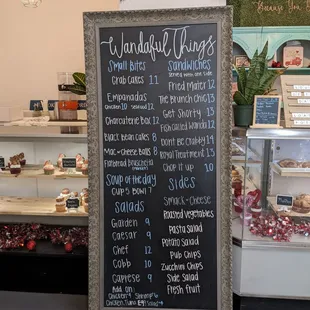 Wandaful Things
Small Bites
Crab Cakes 12
Empanadas
Chicken 10 Seafood 12
Charcuterie Box 12
Black bean Cakes 8
Mac & Cheese Balls 8
Flatbread Bruschetta
Soup of the day
Cup 5 Bowl 7
Salads
Garden 9
Caesar 9
Chef 12
Cobb 10
Caprese 9
Add on:
Chicken 4 Shrimp 6
Sandwiches
Served with one side
Fried Mater 12
The Brunch Chic 13
Get Shorty 13
Fish Called Wanda 12
Don't Be Crabby 13
Royal Treatment 13
Chop it Up 10
Sides
Smack & Cheese
Roasted Vegetables
Pasta Salad
Potato Salad
Pub Chips
Zucchini Chips
Side Salad
Fresh Fruit